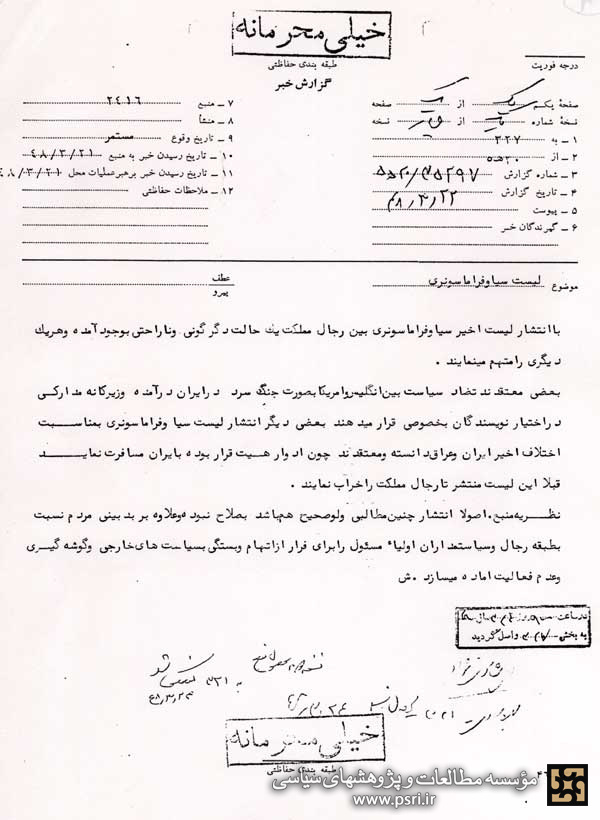 خیلی محرمانه
طبقه بندی حفاظتی
گزارش خبر
درجه فوریت
صفحهٔ یکم یک از یک صفحه
نسخهٔ شماره از نسخه
۱ - به ۳۲۷
۲ - از ۵ﻫ۲۰
۳ - شماره گزارش
۴ - تاریخ گزارش ۴۸/۳/۲۲
۵ - پیوست
۶ - گیرندگان خبر
۷ - منبع ۲۴۱۶
۸ - منشأ
۹ - تاریخ وقوع مستمر
۱۰ - تاریخ رسیدن خبر به منبع ۴۸/۳/۲۱
۱۱ - تاریخ رسیدن خبر برهبر عملیات محل ۴۸/۳/۲۱
۱۲ - ملاحظات حفاظتی
موضوع لیست سیا وفراماسونری
عطف
پیرو
با انتشار لیست اخیر سیا وفراماسونری بین رجال مملکت یک حالت دگرگونی وناراحتی بوجود آمده وهریک
دیگری را متهم مینمایند .
بعضی معتقدند تضاد سیاست بین انگلیس وامریکا بصورت جنگ سرد در ایران درآمده وزیرکانه مدارکی
در اختیار نویسندگان بخصوصی قرار میدهند بعضی دیگر انتشار لیست سیا وفراماسونری بمناسبت
اختلاف اخیر ایران وعراق دانسته ومعتقدند چون ادوارهیت قرار بوده بایران مسافرت نماید
قبلا این لیست منتشر تا رجال مملکت را خراب نمایند .
نظریه منبع. اصولا انتشار چنین مطالبی ولو صحیح هم باشد بصلاح نبوده وعلاوه بر بدبینی مردم نسبت
بطبقه رجال وسیاستمداران اولیاء مسئول را برای فرار از اتهام وبستگی بسیاست های خارجی وگوشه گیری
وعدم فعالیت اماده میسازد . ش
در ساعت روز
به بخش واصل گردید
به ۳۳۱ منعکس شد
۴۸/۳/۲۴
خیلی محرمانه
طبقه بندی حفاظتی
مؤسسه مطالعات و پژوهشهای سیاسی
www.psri.ir